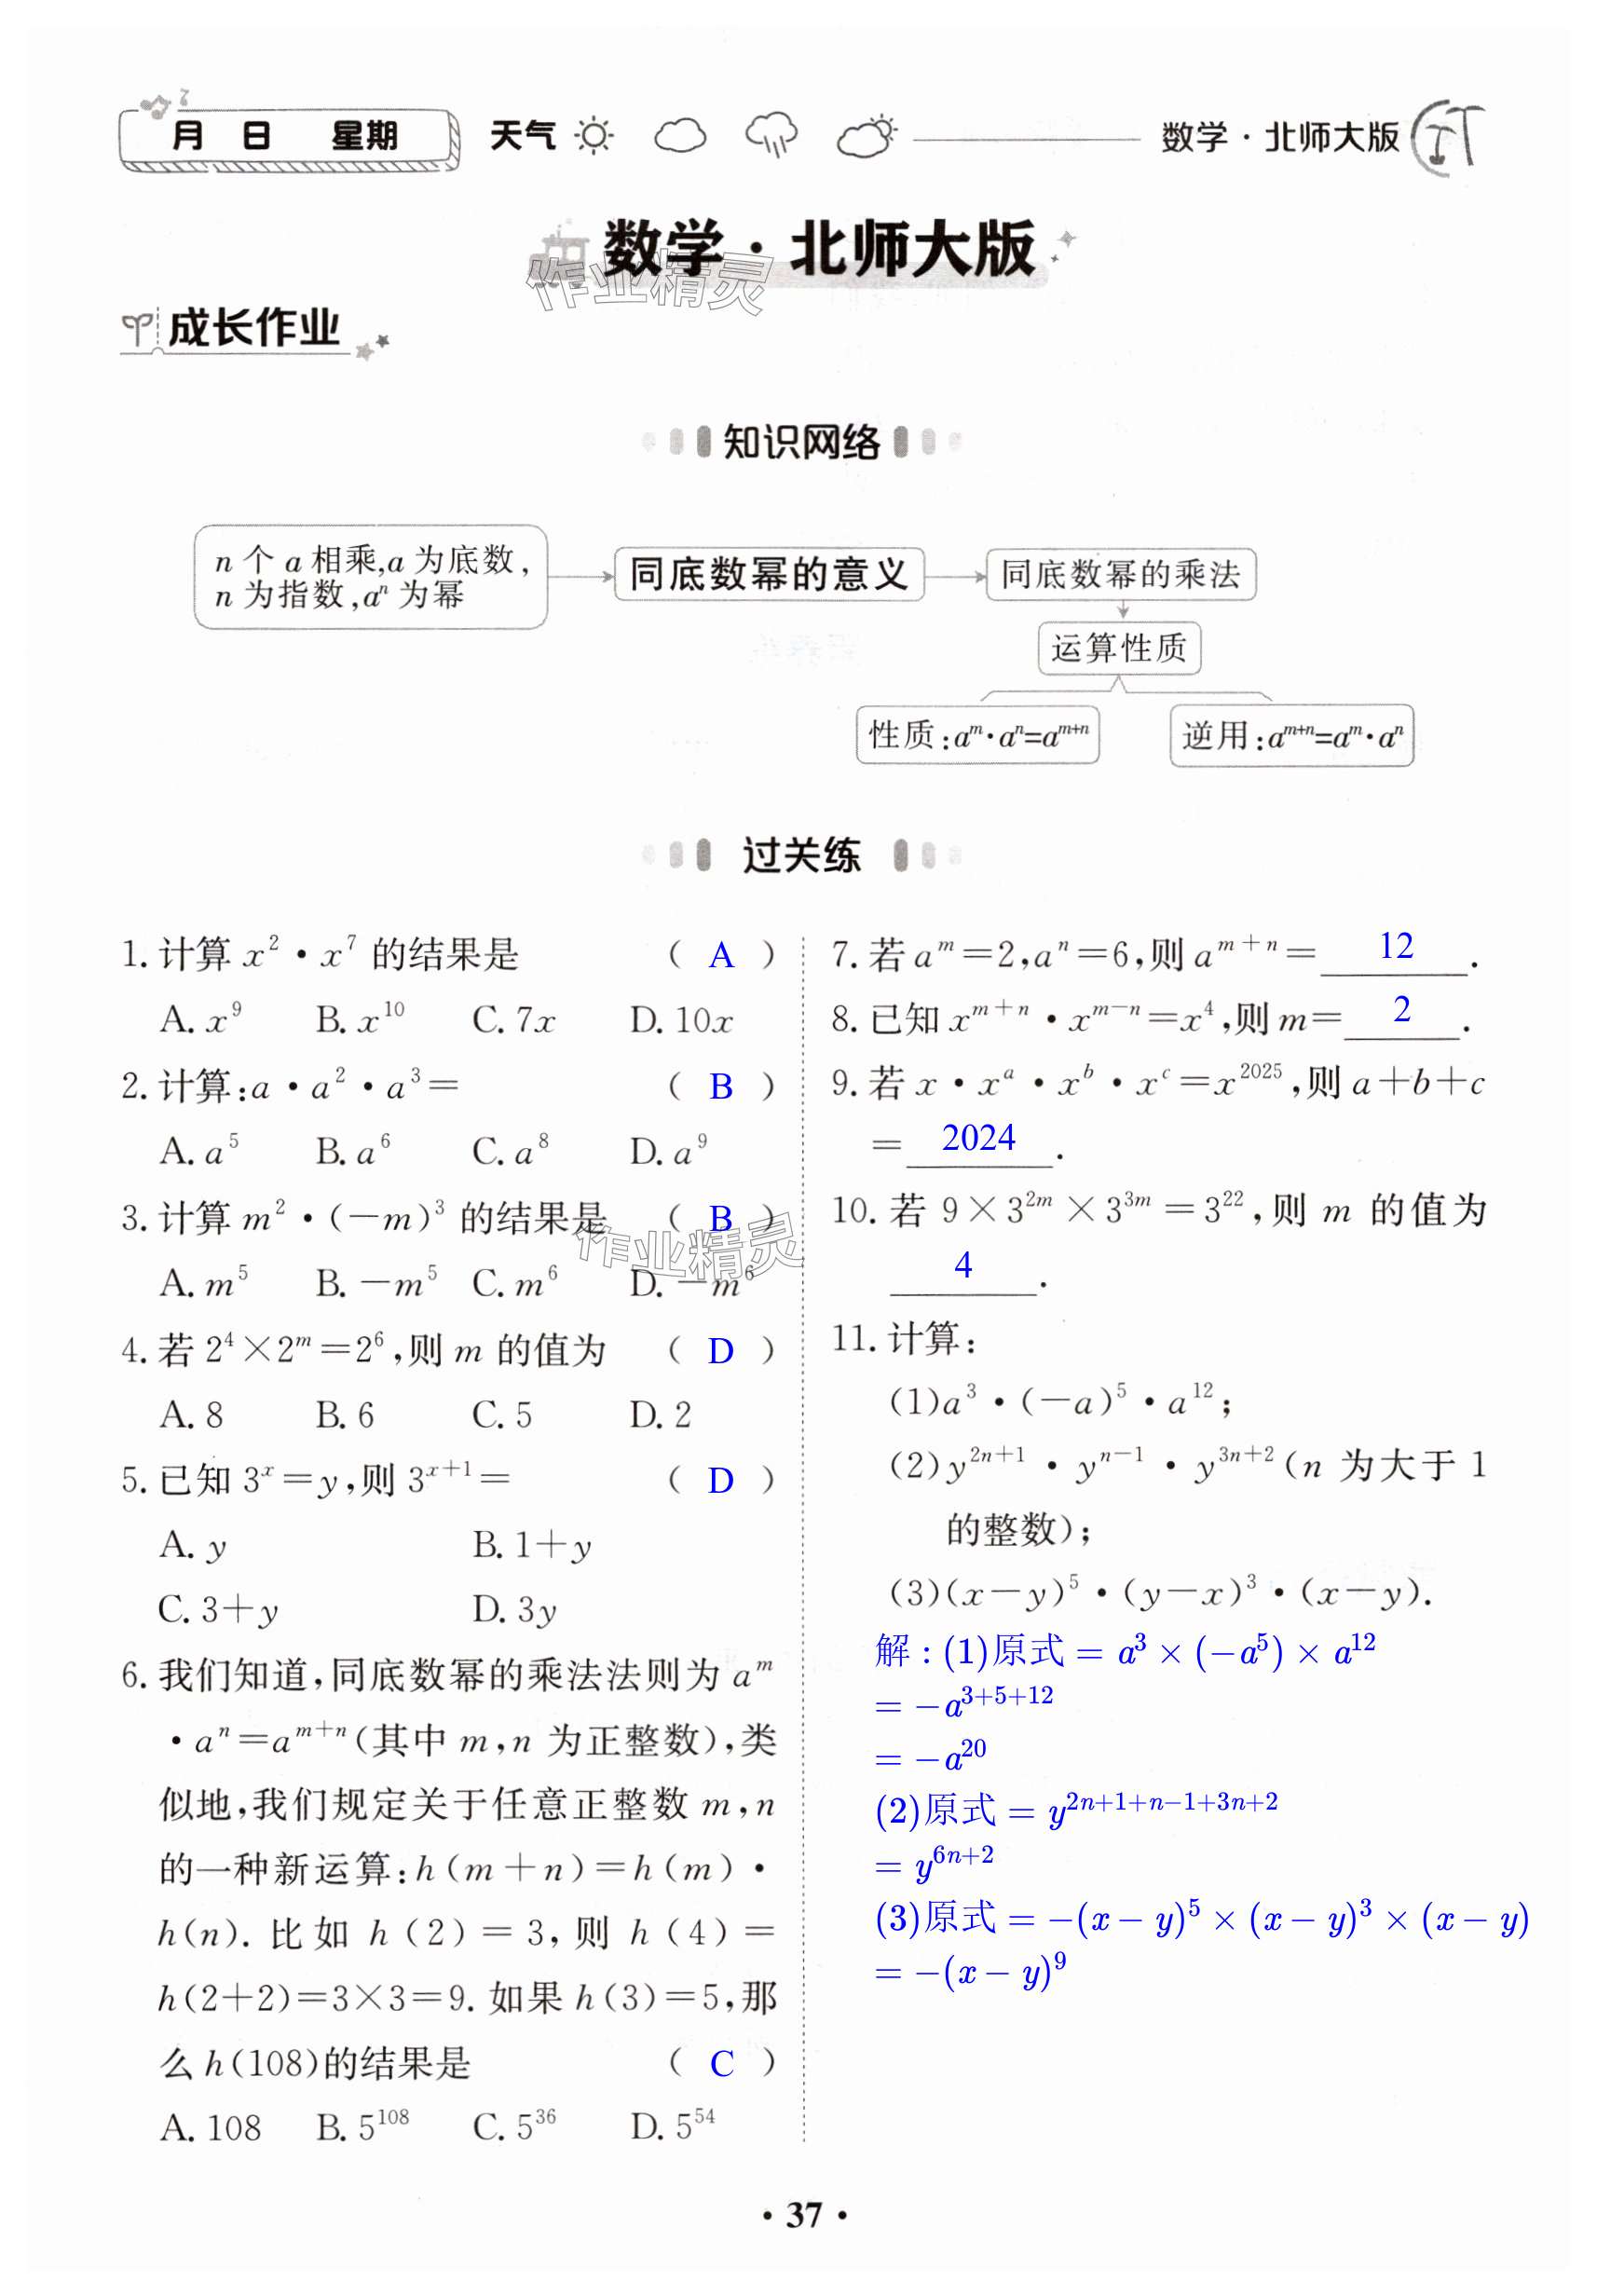 月 日 星期 天气 数学·北师大版
数学·北师大版
作业精灵
成长作业
知识网络
n 个 a 相乘,a 为底数,
n 为指数,aⁿ 为幂
同底数幂的意义
同底数幂的乘法
运算性质
性质:aᵐ·aⁿ=aᵐ⁺ⁿ
逆用:aᵐ⁺ⁿ=aᵐ·aⁿ
过关练
1. 计算 x²·x⁷ 的结果是 ( A )
A. x⁹ B. x¹⁰ C. 7x D. 10x
2. 计算:a·a²·a³= ( B )
A. a⁵ B. a⁶ C. a⁸ D. a⁹
3. 计算 m²·(-m)³ 的结果是 ( B )
作业精灵
A. m⁵ B. -m⁵ C. m⁶ D. -m⁶
4. 若 2⁴×2ᵐ=2⁶,则 m 的值为 ( D )
A. 8 B. 6 C. 5 D. 2
5. 已知 3ˣ=y,则 3ˣ⁺¹= ( D )
A. y B. 1+y
C. 3+y D. 3y
6. 我们知道,同底数幂的乘法法则为 aᵐ
·aⁿ=aᵐ⁺ⁿ(其中 m,n 为正整数),类
似地,我们规定关于任意正整数 m,n
的一种新运算:h(m+n)=h(m)·
h(n). 比如 h(2)=3,则 h(4)=
h(2+2)=3×3=9. 如果 h(3)=5,那
么 h(108)的结果是 ( C )
A. 108 B. 5¹⁰⁸ C. 5³⁶ D. 5⁵⁴
7. 若 aᵐ=2,aⁿ=6,则 aᵐ⁺ⁿ= 12 .
8. 已知 xᵐ⁺ⁿ·xᵐ⁻ⁿ=x⁴,则 m= 2 .
9. 若 x·xᵃ·xᵇ·xᶜ=x²⁰²⁵,则 a+b+c
= 2024 .
10. 若 9×3²ᵐ×3³ᵐ=3²²,则 m 的值为
4 .
11. 计算:
(1)a³·(-a)⁵·a¹²;
(2)y²ⁿ⁺¹·yⁿ⁻¹·y³ⁿ⁺²(n 为大于 1
的整数);
(3)(x-y)⁵·(y-x)³·(x-y).
解:(1)原式=a³×(-a⁵)×a¹²
=-a³⁺⁵⁺¹²
=-a²⁰
(2)原式=y²ⁿ⁺¹⁺ⁿ⁻¹⁺³ⁿ⁺²
=y⁶ⁿ⁺²
(3)原式=-(x-y)⁵×(x-y)³×(x-y)
=-(x-y)⁹
·37·